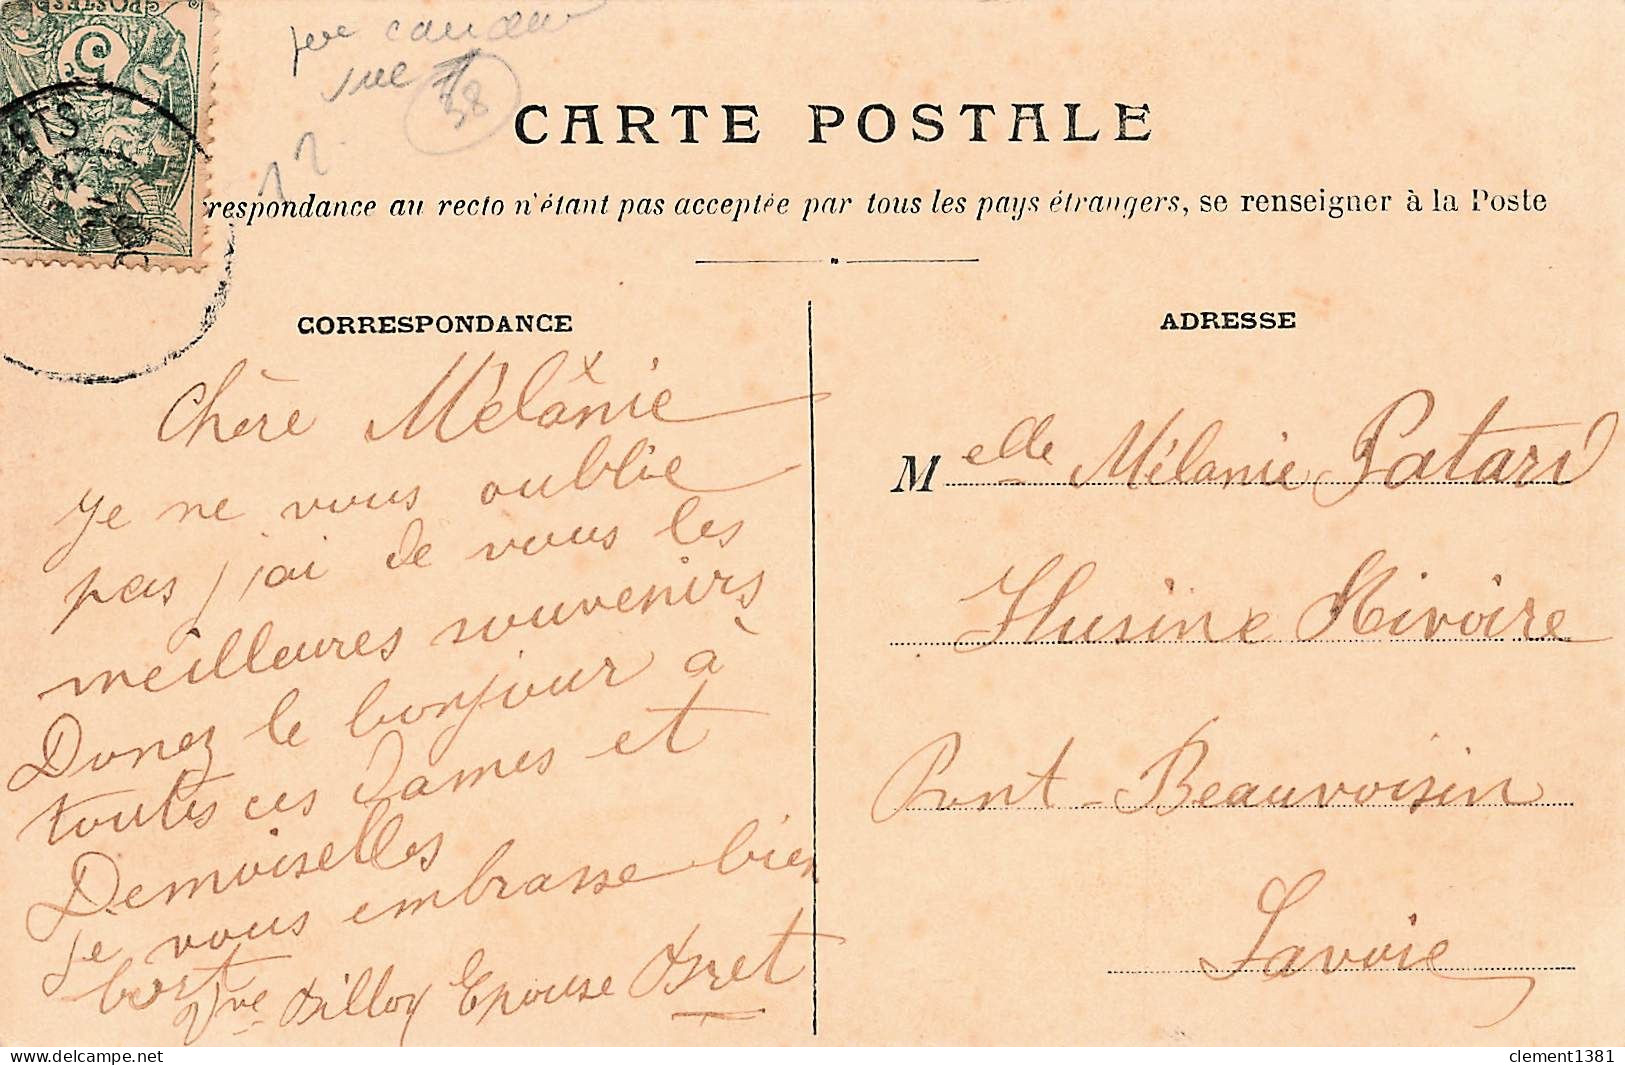 POSTES
5
38
12.
CARTE POSTALE
respondance au recto n'étant pas acceptée par tous les pays étrangers, se renseigner à la Poste
CORRESPONDANCE
ADRESSE
Chère Mélanie
je ne vous oublie
pas j'ai de vous les
meilleures souvenirs
Donez le bonjour à
toutes ces Dames et
Demoiselles
je vous embrasse bien
bort
Vve Dilloy Epouse
Melle Mélanie Patard
Husine Rivoire
Pont-Beauvoisin
Savoie
delcampe.net
clement1381